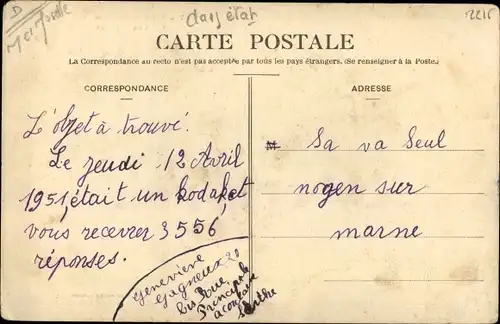 D
dans état
2216
CARTE POSTALE
La Correspondance au recto n'est pas acceptée par tous les pays étrangers. (Se renseigner à la Poste.)
CORRESPONDANCE
L'objet à trouvé.
Le jeudi 12 Avril
1951, était un kodak, et
vous recevrer 3556
réponses.
Geneviève
Gagneux 20
bis Rue
Principale
Sarthe
ADRESSE
Sa va Seul
nogen sur
marne